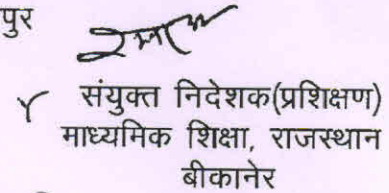 पुर
संयुक्त निदेशक(प्रशिक्षण)
माध्यमिक शिक्षा, राजस्थान
बीकानेर